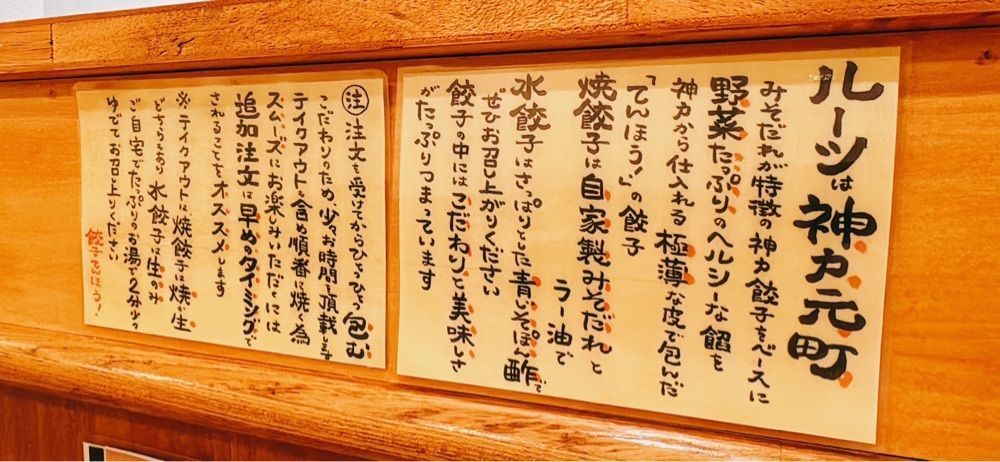 ルーツは神戸元町
みそだれが特徴の神戸餃子をベースに
野菜たっぷりのヘルシーな餡を
神戸から仕入れる極薄な皮で包んだ
「てんほう!」の餃子
焼餃子は自家製みそだれと
ラー油で
水餃子はさっぱりとした青じそぽん酢で
ぜひお召し上がりください
餃子の中にはこだわりと美味しさ
がたっぷりつまっています
注 注文を受けてからひとつひとつ包む
こだわりのため、少々お時間を頂戴します
テイクアウト含め順番に焼く為
スムーズにお楽しみいただくには
追加注文は早めのタイミングで
されることをオススメします
※テイクアウトは、焼餃子は焼か生
どちらもあり 水餃子は生のみ
ご自宅でたっぷりのお湯で2分少々
ゆでてお召し上りください
餃子てんほう!